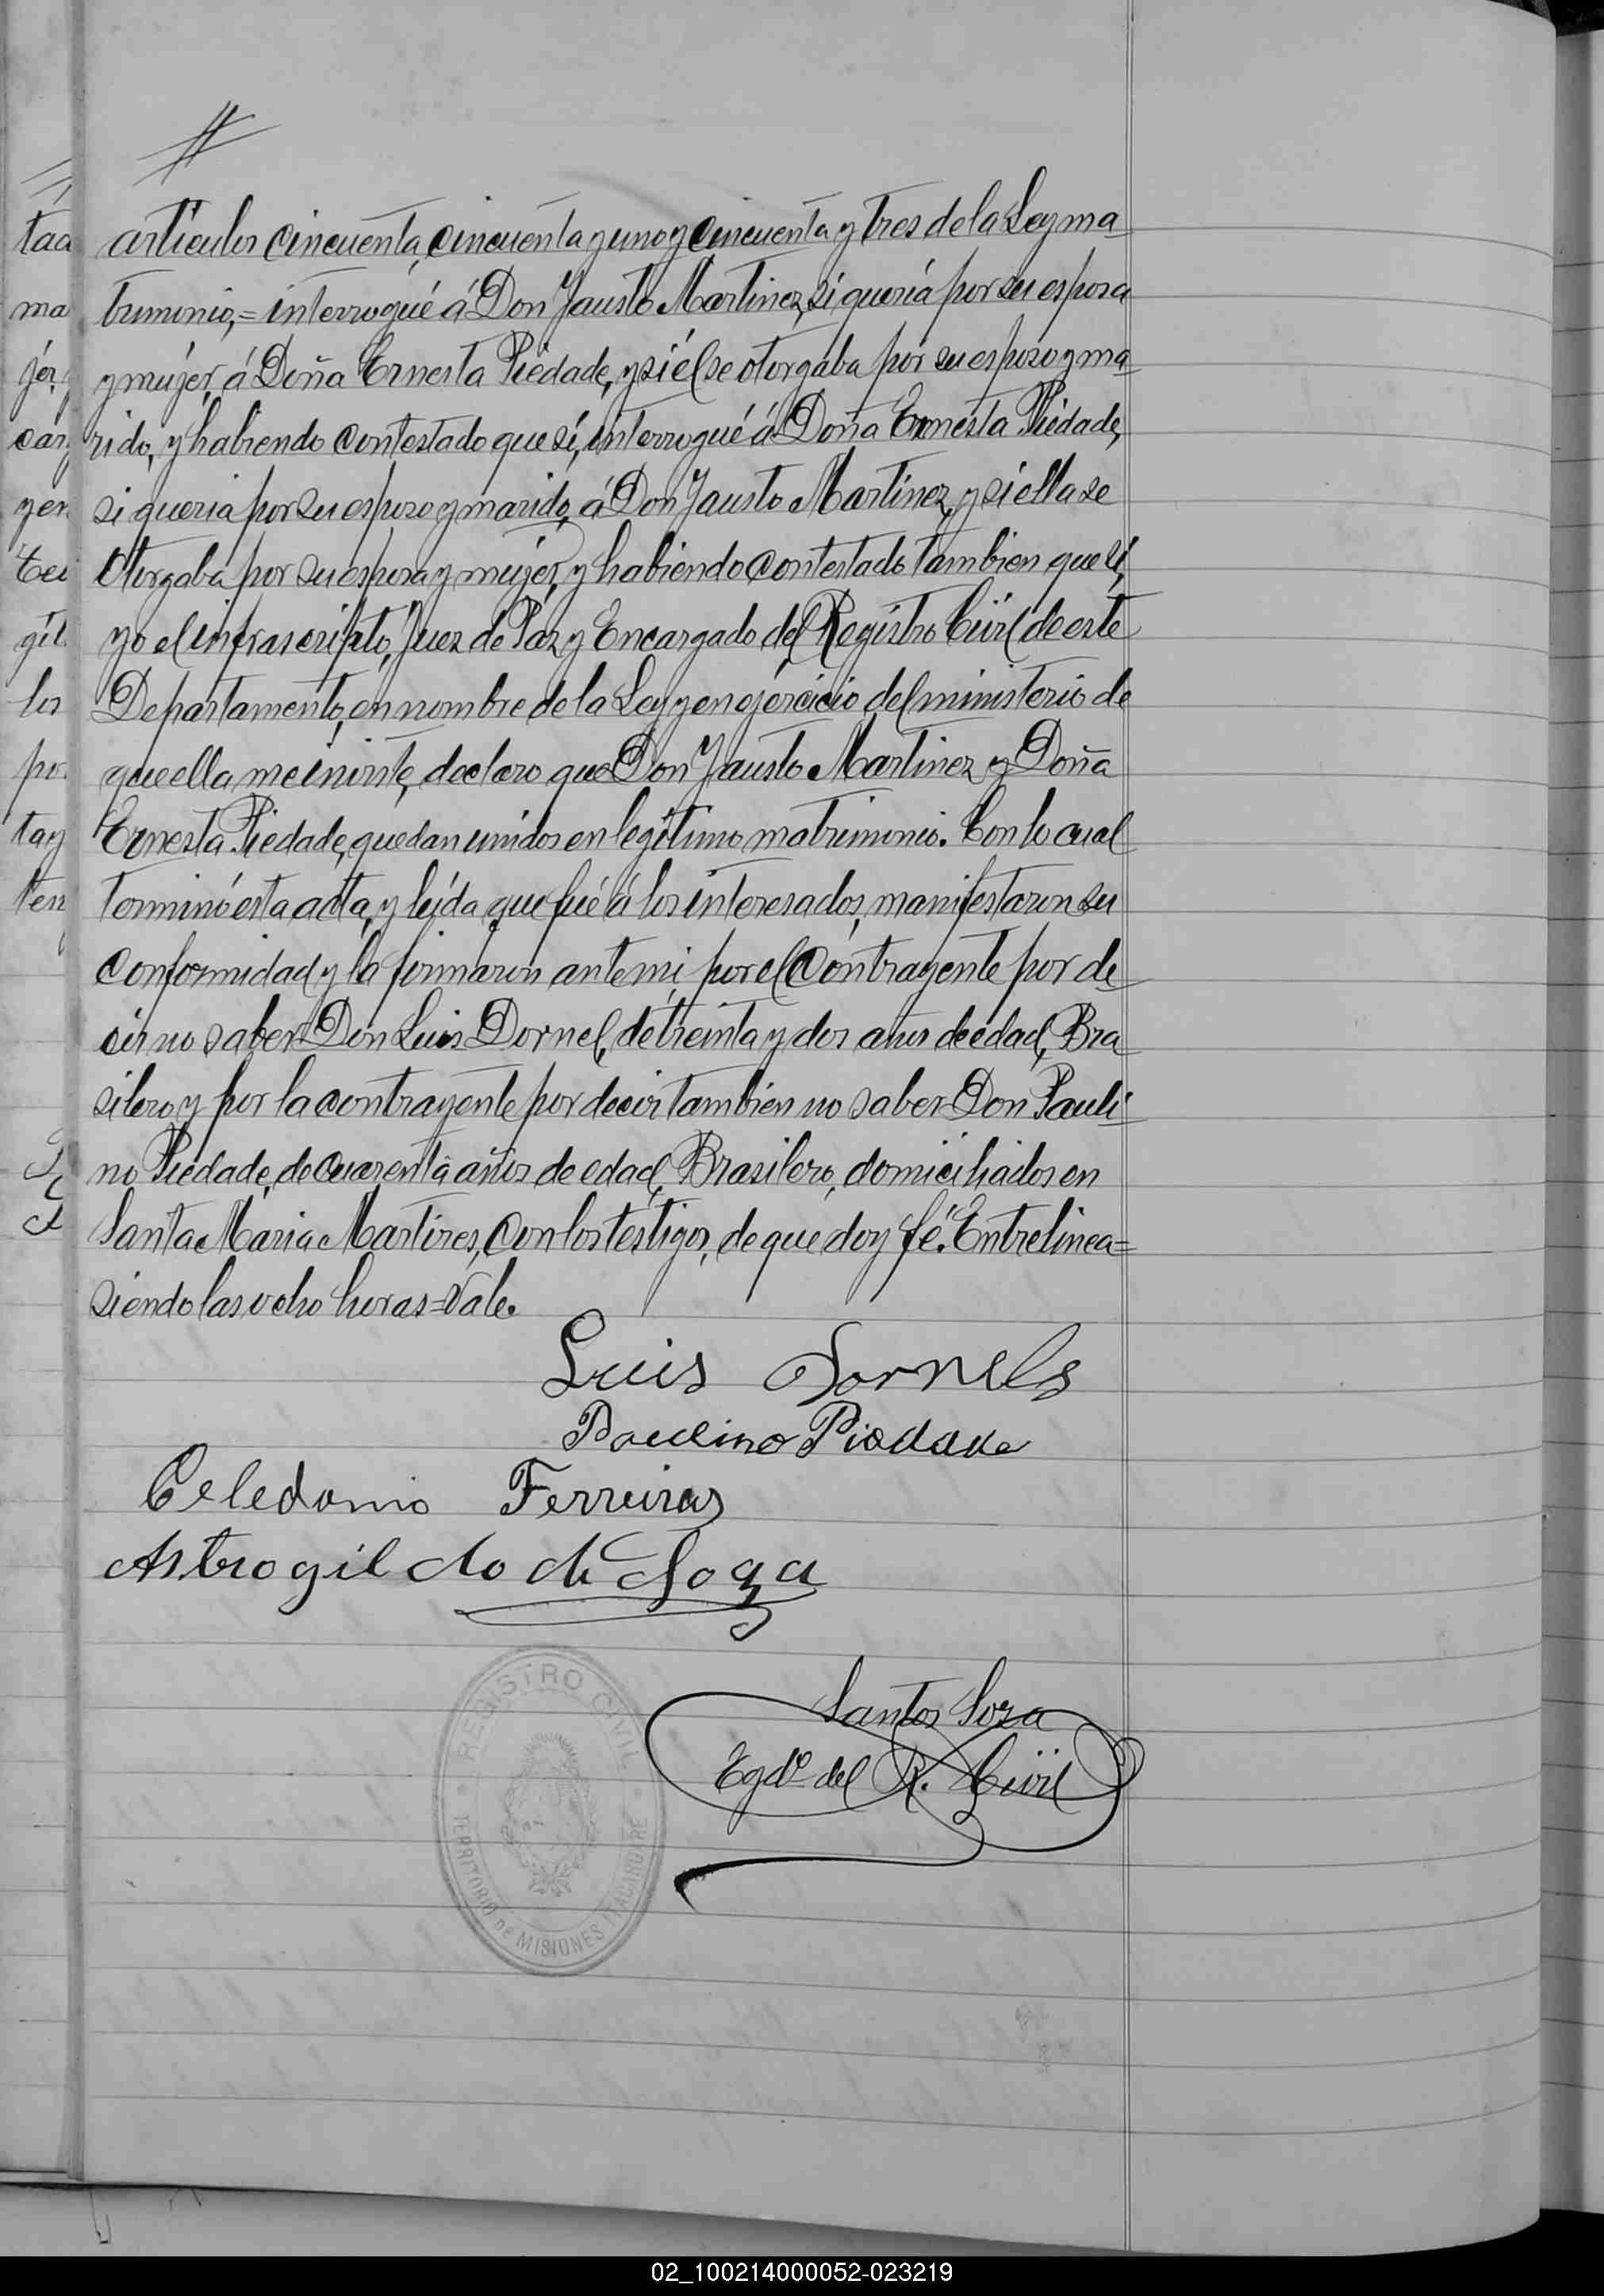 articulos cincuenta, cincuenta y uno y cincuenta y tres de la Ley ma
trimonio,= interrogué á Don Fausto Martinez, si queria por su esposa
y mujer, á Doña Ernesta Piedade, y si él se otorgaba por su esposo y ma
rido, y habiendo contestado que sí, interrogué á Doña Ernesta Piedade,
si queria por su esposo y marido, á Don Fausto Martinez, y si ella se
otorgaba por su esposa y mujer, y habiendo contestado tambien que sí,
yo el infrascripto, Juez de Paz y Encargado del Registro Civil de este
Departamento, en nombre de la Ley y en ejercicio del ministerio de
que ella me inviste, declaro que Don Fausto Martinez y Doña
Ernesta Piedade, quedan unidos en legítimo matrimonio. Con lo cual
terminó esta acta, y leida que fué á los interesados, manifestaron su
conformidad y la firmaron ante mi, por el contrayente por de
cir no saber Don Luis Dornel, de treinta y dos años de edad, Bra
silero y por la contrayente por decir tambien no saber Don Pauli
no Piedade, de cuarenta años de edad, Brasilero, domiciliados en
Santa Maria Martires, con los testigos, de que doy fé. Entrelinea=
siendo las ocho horas=Vale.
Luis Dornels
Paulino Piedade
Celedonio Ferreiras
Astrogildo da Soza
REGISTRO CIVIL
TERRITORIO DE MISIONES ITACARUARE
Santos Soza
Egdo del R. Civil
taa
ma
jer, y
car
y en
Tei
gil
los
por
tay
ten
02_100214000052-023219